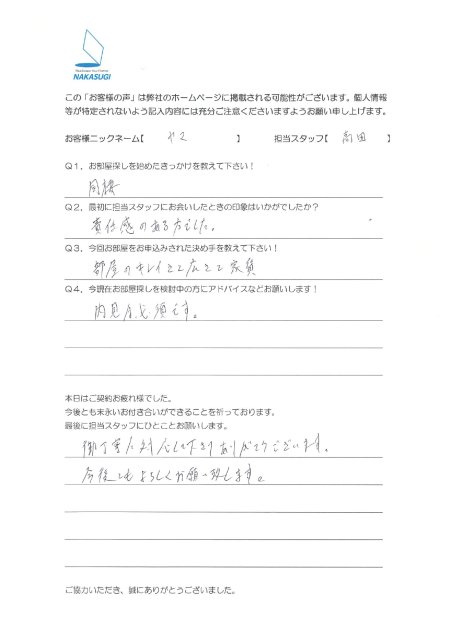 NAKASUGI
この「お客様の声」は弊社のホームページに掲載される可能性がございます。個人情報
等が特定されないよう記入内容には充分ご注意くださいますようお願い申し上げます。
お客様ニックネーム【 やス 】 担当スタッフ【 高田 】
Q1．お部屋探しを始めたきっかけを教えて下さい！
同棲
Q2．最初に担当スタッフにお会いしたときの印象はいかがでしたか？
責任感のある方でした。
Q3．今回お部屋をお申込みされた決め手を教えて下さい！
部屋のキレイさと広さと家賃
Q4．今現在お部屋探しを検討中の方にアドバイスなどお願いします！
内見は必須です。
本日はご契約お疲れ様でした。
今後とも末永いお付き合いができることを祈っております。
最後に担当スタッフにひとことお願いします。
御丁寧に対応して下さりありがとうございます。
今後ともよろしくお願い致します。
ご協力いただき、誠にありがとうございました。